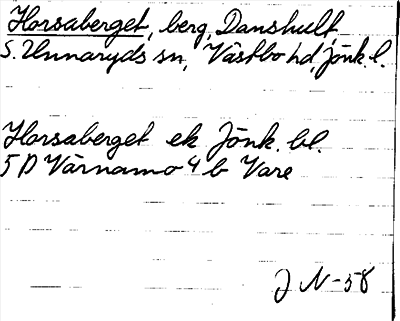 Horsaberget, berg, Danshult
S. Unnaryds sn, Västbo hd, Jönk. l.
Horsaberget ek Jönk. bl.
5 D Värnamo 4 b Vare
J N-58